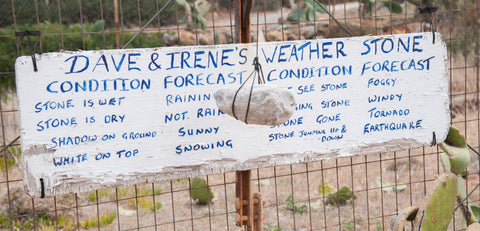 DAVE & IRENE'S WEATHER STONE
CONDITION FORECAST CONDITION FORECAST
STONE IS WET RAINING SEE STONE FOGGY
STONE IS DRY NOT RAIN STONE WINDY
SHADOW ON GROUND SUNNY STONE GONE TORNADO
WHITE ON TOP SNOWING STONE JUMPING UP & DOWN EARTHQUAKE